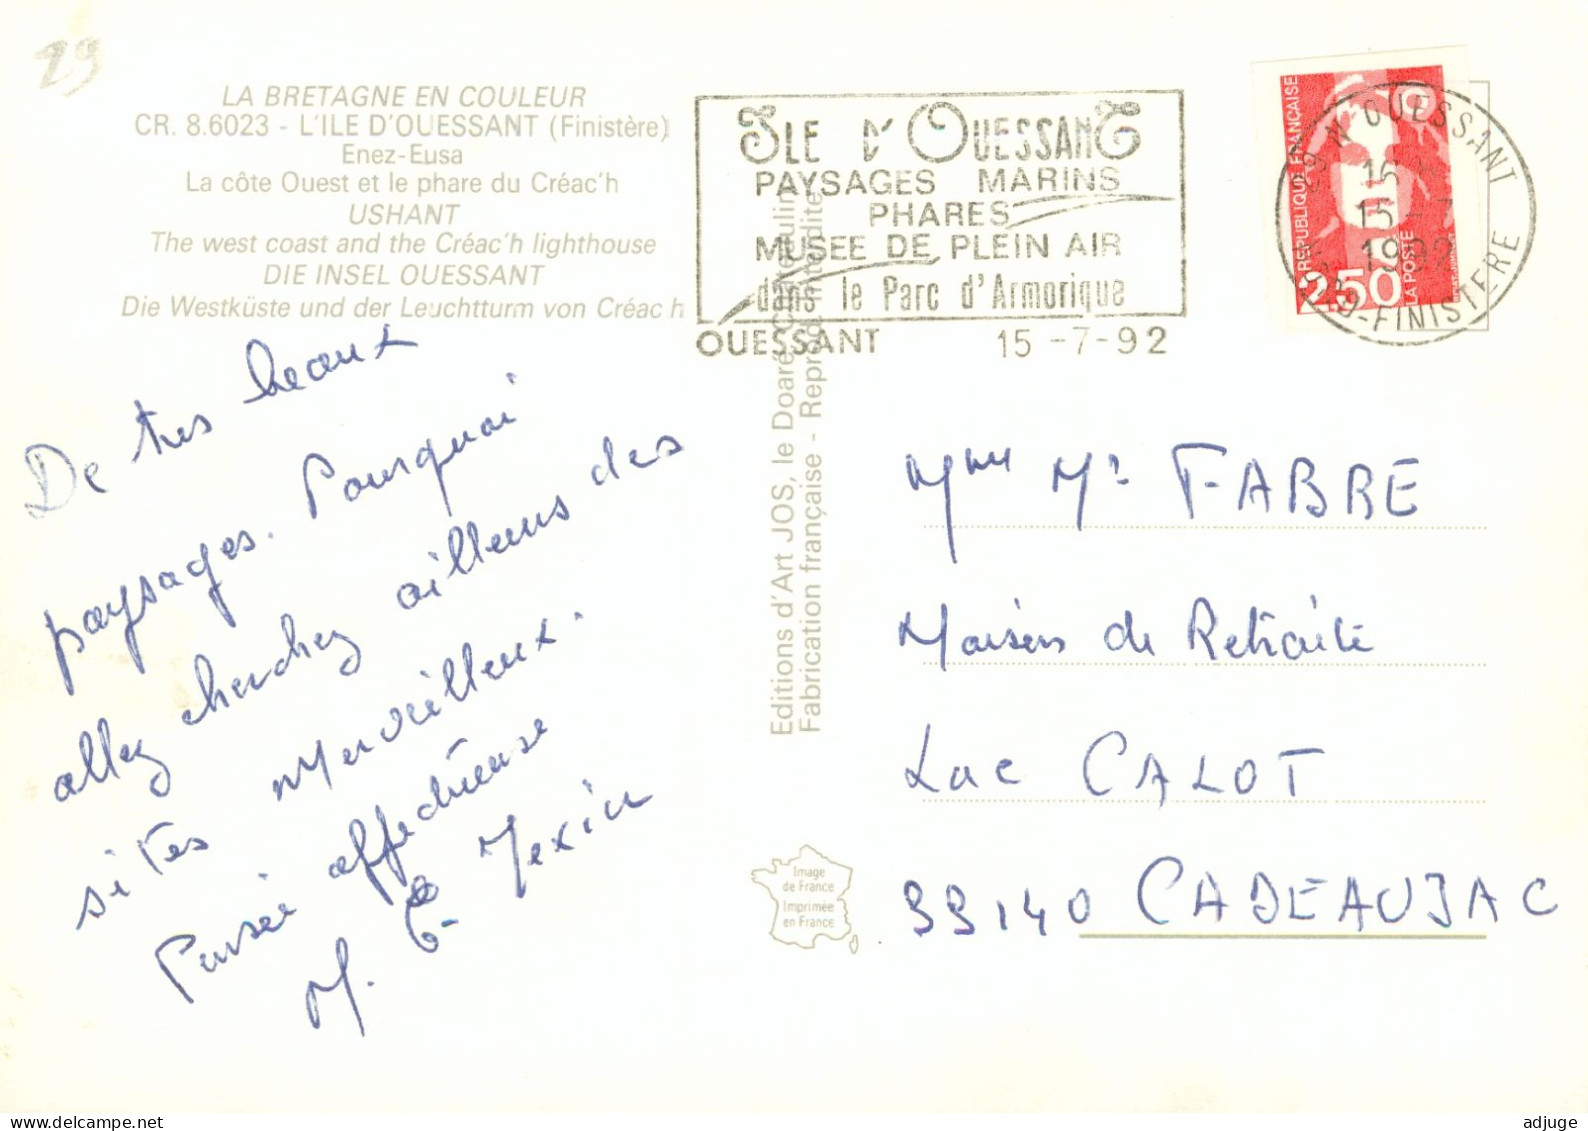 29
LA BRETAGNE EN COULEUR
CR. 8.6023 - L'ILE D'OUESSANT (Finistère)
Enez-Eusa
La côte Ouest et le phare du Créac'h
USHANT
The west coast and the Créac'h lighthouse
DIE INSEL OUESSANT
Die Westküste und der Leuchtturm von Créac'h
ILE D'OUESSANT
PAYSAGES MARINS
PHARES
MUSEE DE PLEIN AIR
dans le Parc d'Armorique
OUESSANT 15-7-92
REPUBLIQUE FRANÇAISE
2,50
LA POSTE
OUESSANT
16 H
15-7
1992
29-FINISTERE
De très beaux
paysages. Pourquoi
allez cherchez ailleurs des
sites merveilleux.
Pensée affectueuse
M. C.
Editions d'Art JOS, le Doaré, Châteaulin
Fabrication française - Reprod. interdite
Mme Mr FABRE
Maison de Retraite
Lac CALOT
33140 CADEAUJAC
Image
de France
Imprimée
en France
adjuge